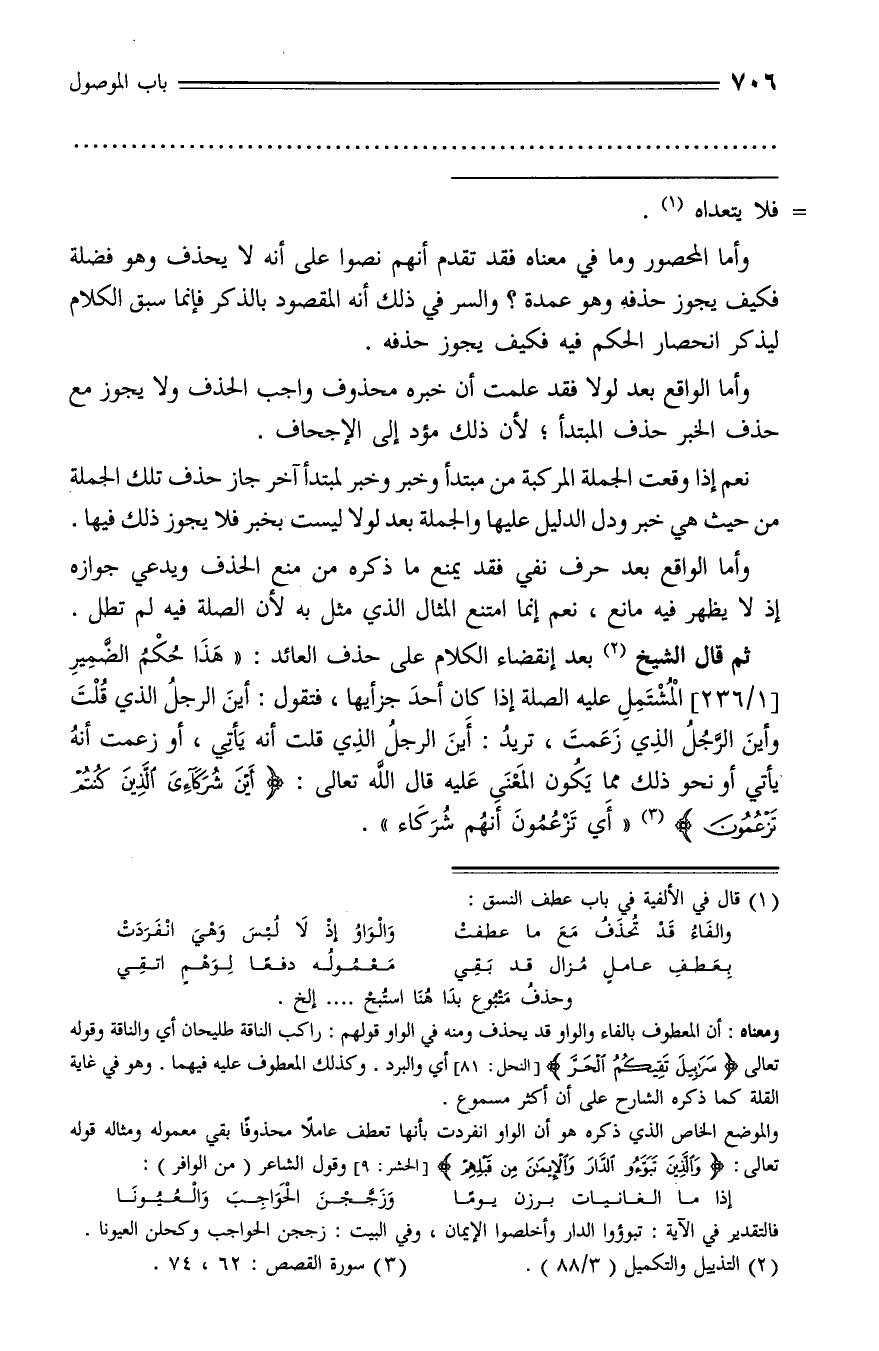 ٧٠٦ باب الموصول
= فلا يتعداه (١) .
وأما المحصور وما في معناه فقد تقدم أنهم نصوا على أنه لا يحذف وهو فضلة
فكيف يجوز حذفه وهو عمدة ؟ والسر في ذلك أنه المقصود بالذكر فإنما سبق الكلام
ليذكر انحصار الحكم فيه فكيف يجوز حذفه .
وأما الواقع بعد لولا فقد علمت أن خبره محذوف واجب الحذف ولا يجوز مع
حذف الخبر حذف المبتدأ ؛ لأن ذلك مؤد إلى الإجحاف .
نعم إذا وقعت الجملة المركبة من مبتدأ وخبر وخبر لمبتدأ آخر جاز حذف تلك الجملة
من حيث هي خبر ودل الدليل عليها والجملة بعد لولا ليست بخبر فلا يجوز ذلك فيها .
وأما الواقع بعد حرف نفي فقد يمنع ما ذكره من منع الحذف ويدعي جوازه
إذ لا يظهر فيه مانع ، نعم إنما امتنع المثال الذي مثل به لأن الصلة فيه لم تطل .
ثم قال الشيخ (٢) بعد إنقضاء الكلام على حذف العائد : « هَذَا حُكْمُ الضَّمِيرِ
[٢٣٦/١] الْمُشْتَمِلِ عليه الصلة إذا كان أحدَ جزأيها ، فتقول : أينَ الرجلُ الذي قُلْتَ
وأينَ الرَّجُلُ الذِي زَعَمتَ ، تريدُ : أَينَ الرجلُ الذِي قلت أنه يَأتِي ، أو زعمت أنهُ
يأتي أو نحو ذلك مما يَكُون المَعْنَى عَليه قال اللَّه تعالى : ﴿ أَيْنَ شُرَكَآءِىَ ٱلَّذِينَ كُنتُمْ
تَزْعُمُونَ ﴾ (٣) « أَي تَزْعُمُونَ أنهُم شُرَكَاء » .
(١) قال في الألفية في باب عطف النسق :
والفَاءُ قَدْ تُحذَفُ مَعَ ما عطفتْ وَالْوَاوُ إذْ لَا لُبْسَ وَهْيَ انْفَرَدَتْ
بِعَطفِ عاملٍ مُزال قد بَقِي مَعْمُولُه دفعًا لِوَهْمٍ اتقِي
وحذفُ مَتْبُوع بدَا هُنَا استَبِحْ .... إلخ .
ومعناه : أن المعطوف بالفاء والواو قد يحذف ومنه في الواو قولهم : راكب الناقة طليحان أي والناقة وقوله
تعالى ﴿ سَرَٰبِيلَ تَقِيكُمُ ٱلْحَرَّ ﴾ [النحل: ٨١] أي والبرد . وكذلك المعطوف عليه فيهما . وهو في غاية
القلة كما ذكره الشارح على أن أكثر مسموع .
والموضع الخاص الذي ذكره هو أن الواو انفردت بأنها تعطف عاملًا محذوفًا بقي معموله ومثاله قوله
تعالى: ﴿ وَٱلَّذِينَ تَبَوَّءُو ٱلدَّارَ وَٱلْإِيمَٰنَ مِن قَبْلِهِمْ ﴾ [الحشر: ٩] وقول الشاعر ( من الوافر ) :
إذا ما الغانيات برزن يومًا وَزَجَّجْنَ الحْوَاجِبَ وَالْعُيُونَا
فالتقدير في الآية : تبوؤوا الدار وأخلصوا الإيمان ، وفي البيت : زججن الحواجب وكحلن العيونا .
(٢) التذييل والتكميل ( ٨٨/٣ ) . (٣) سورة القصص : ٦٢ ، ٧٤ .